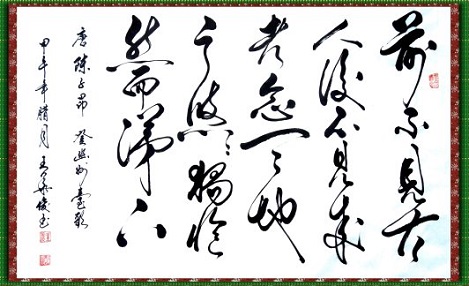 前不見古
人後不見来
者念天地
之悠悠獨愴
然而涕下
唐陳子昂 登幽州臺歌
甲午年臘月 王 俊書